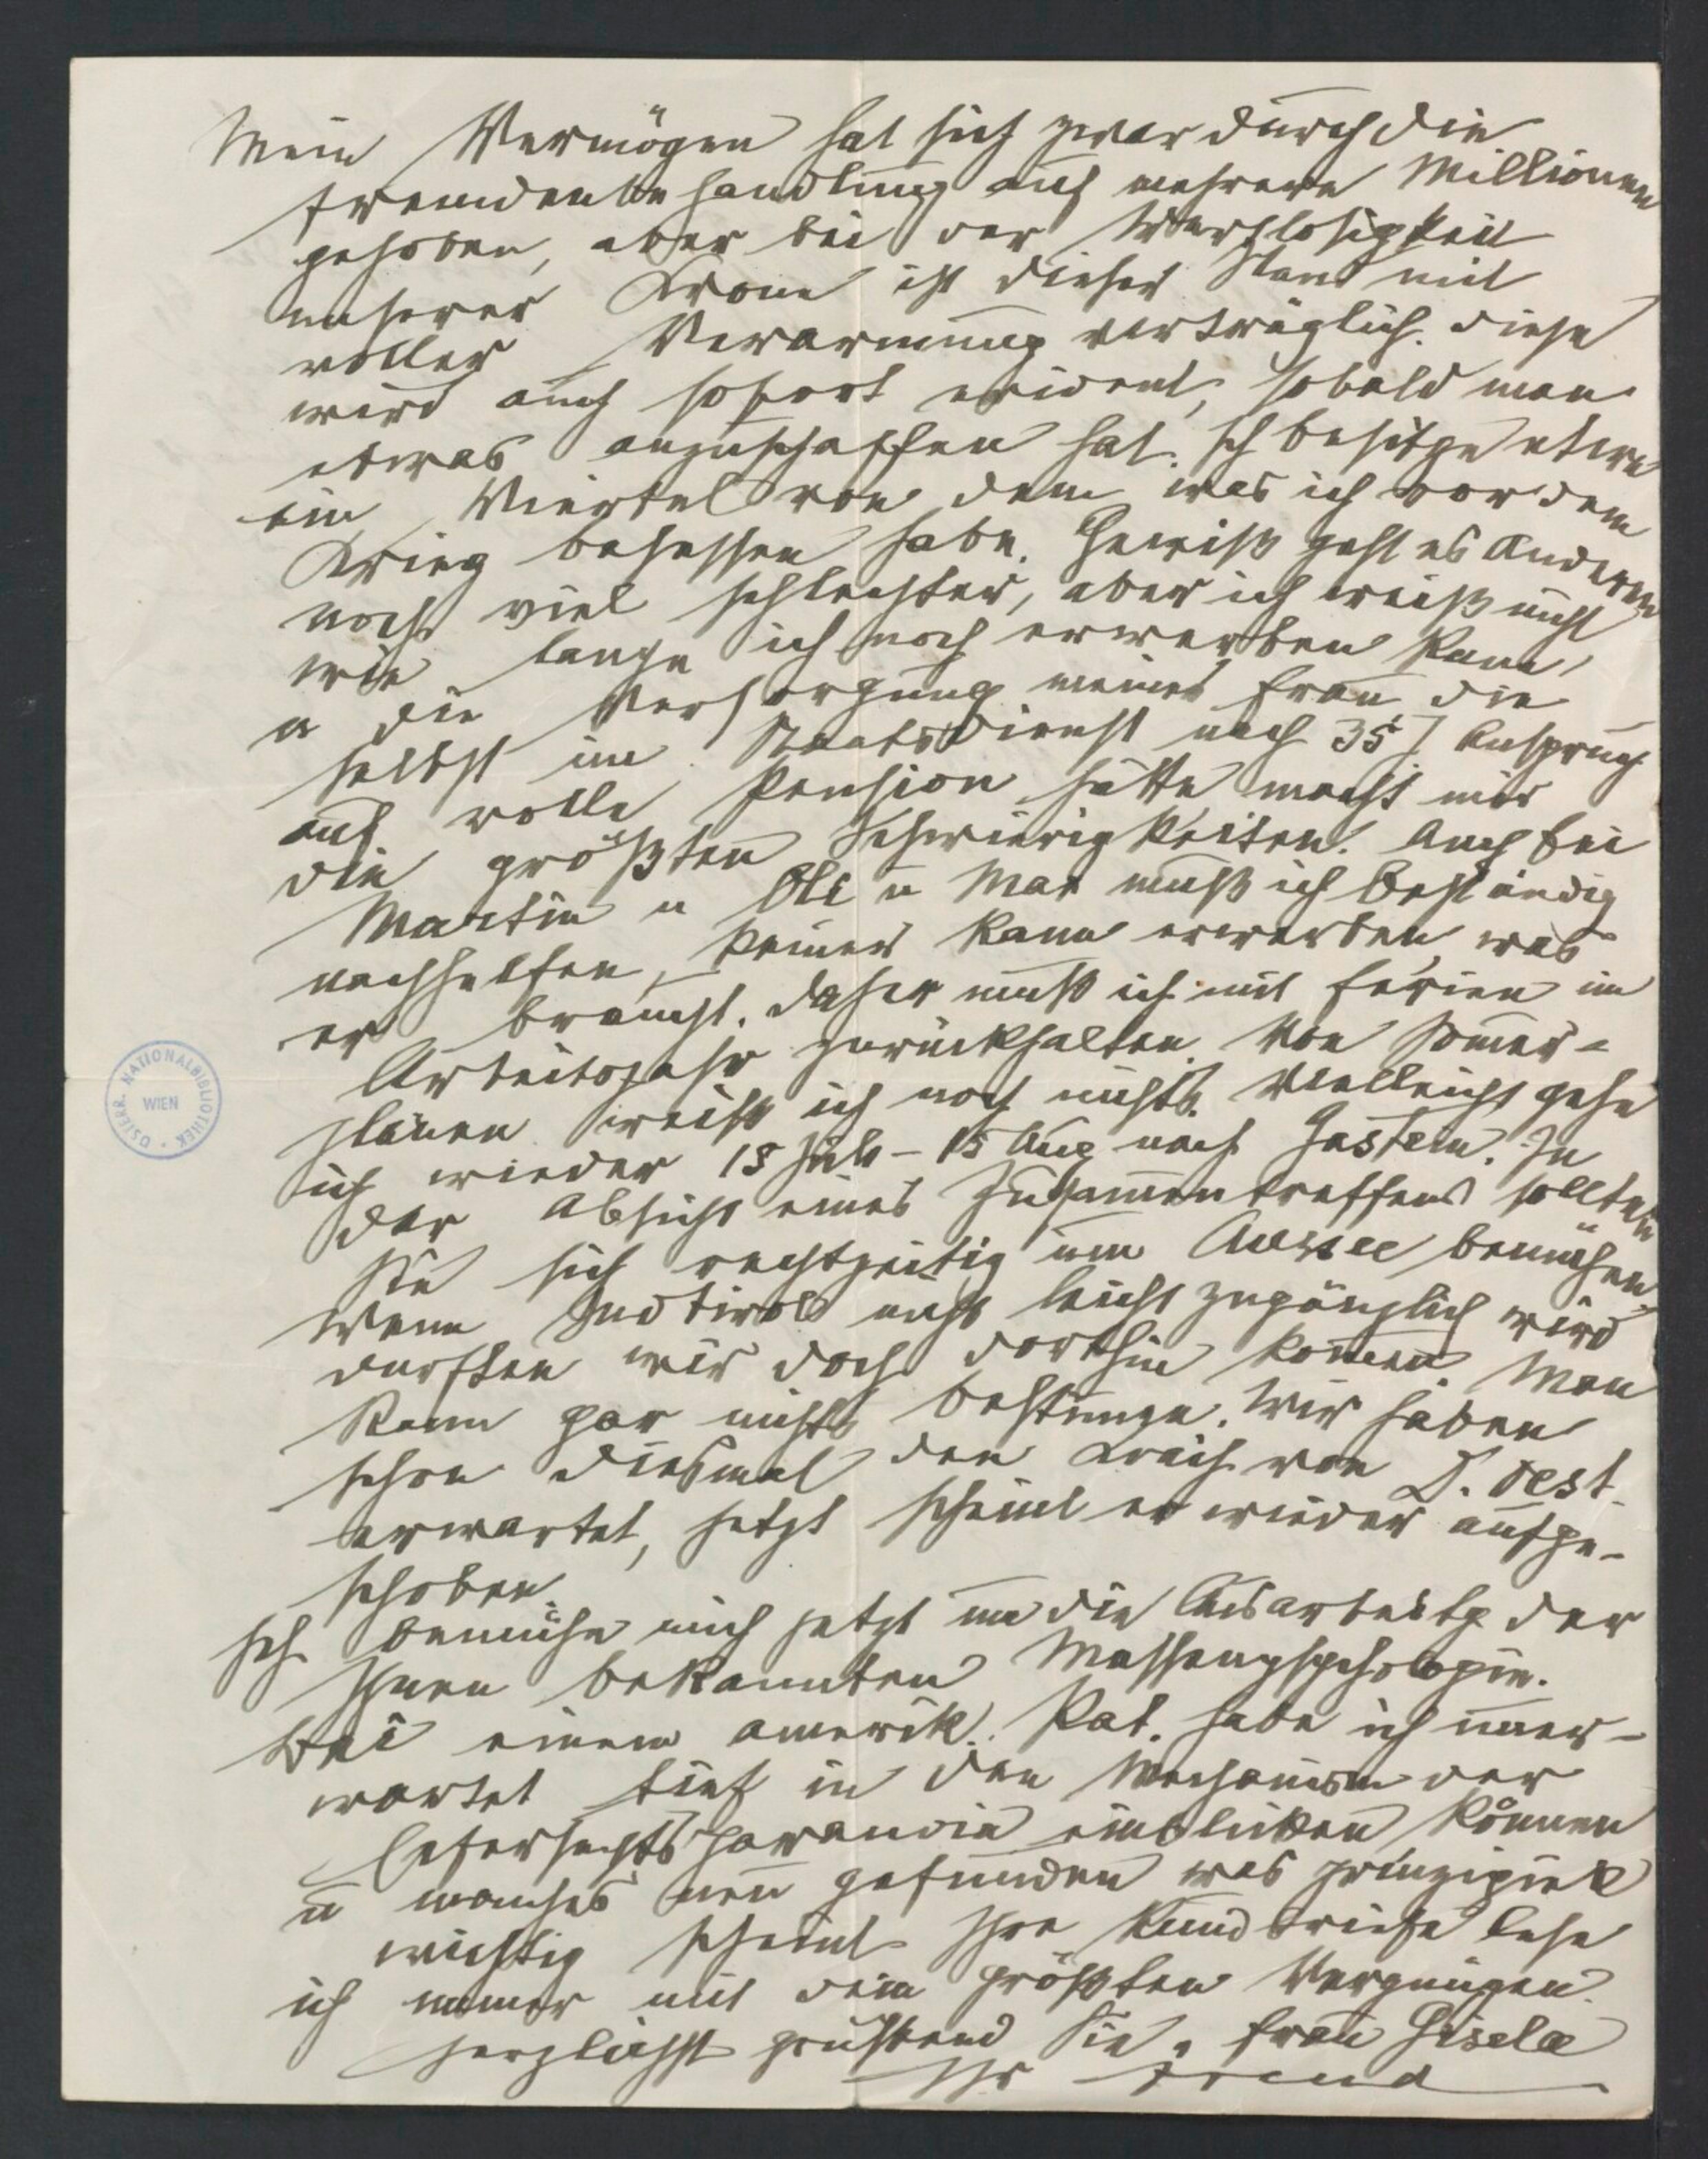 Mein Vermögen hat sich zwar durch die
Fremdenbehandlung auf mehrere Millionen
gehoben, aber bei der Wertlosigkeit
unserer Krone ist dieser Stand mit
voller Verarmung verträglich. Diese
wird auch sofort evident, sobald man
etwas anzuschaffen hat. Ich besitze etwa
ein Viertel von dem was ich vor dem
Krieg besessen habe. Gewiß geht es Anderen
noch viel schlechter, aber ich weiß nicht
wie lange ich noch erwerben kann,
u die Versorgung meiner Frau die
selbst im Staatsdienst nach 35 J Anspruch
auf volle Pension hätte macht mir
die größten Schwierigkeiten. Auch bei
Martin u Oli u Max muß ich beständig
nachhelfen, keiner kann erwerben was
er braucht. Daher muß ich mit Ferien im
Arbeitsjahr zurückhalten. Von Sommer-
plänen weiß ich noch nichts. Vielleicht gehe
ich wieder 15 Juli – 15 Aug nach Gastein. In
der Absicht eines Zusammentreffens sollten
Sie sich rechtzeitig um Aussee bemühen.
Wenn Südtirol nicht leicht zugänglich wird
durften wir doch dorthin kommen. Man
kann gar nichts bestimmen. Wir haben
schon diesmal den Krach von D. Oest.
erwartet, jetzt scheint er wieder aufge-
schoben.
Ich bemühe mich jetzt um die Ausarbeitg der
Ihnen bekannten Massenpsychologie.
Bei einem amerik. Pat. habe ich uner-
wartet tief in den Mechanism der
Eifersuchtsparanoia einblicken können
u manches neu gefunden was prinzipiell
wichtig scheint. Ihre Rundbriefe lese
ich immer mit dem größten Vergnügen.
Herzlichst grüßend Sie u Frau Gisela
Ihr Freud
ÖSTERR. NATIONALBIBLIOTHEK · WIEN